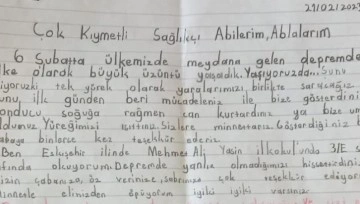 21/02/2023
Çok Kıymetli Sağlıkçı Abilerim, Ablalarım
6 Şubatta ülkemizde meydana gelen depremde
lke olarak büyük üzüntü yaşadık. Yaşıyoruzda... Şunu
iyoruzki tek yürek olarak yaralarımızı birlikte saracağız
unu, ilk günden beri mücadeleniz ile bize gösterdini
onducu soğuğa rağmen can kurtardınız ya bize um
ldunuz Yüreğimizi ısıttınız. Sizlere minnettarız. Gösterdiğiniz
abaya binlerce kez teşekkür ederiz.
Ben Eskişehir ilinde Mehmet Ali Yasin ilkokulunda 3/E s
fında okuyorum. Depremde yanlız olmadığımızı hissettirdini
izin çabanıza, öz verinize, sabrınıza çok teşekkür ediyoru
innetle elinizden öpüyorum iyiki iyiki varsınız